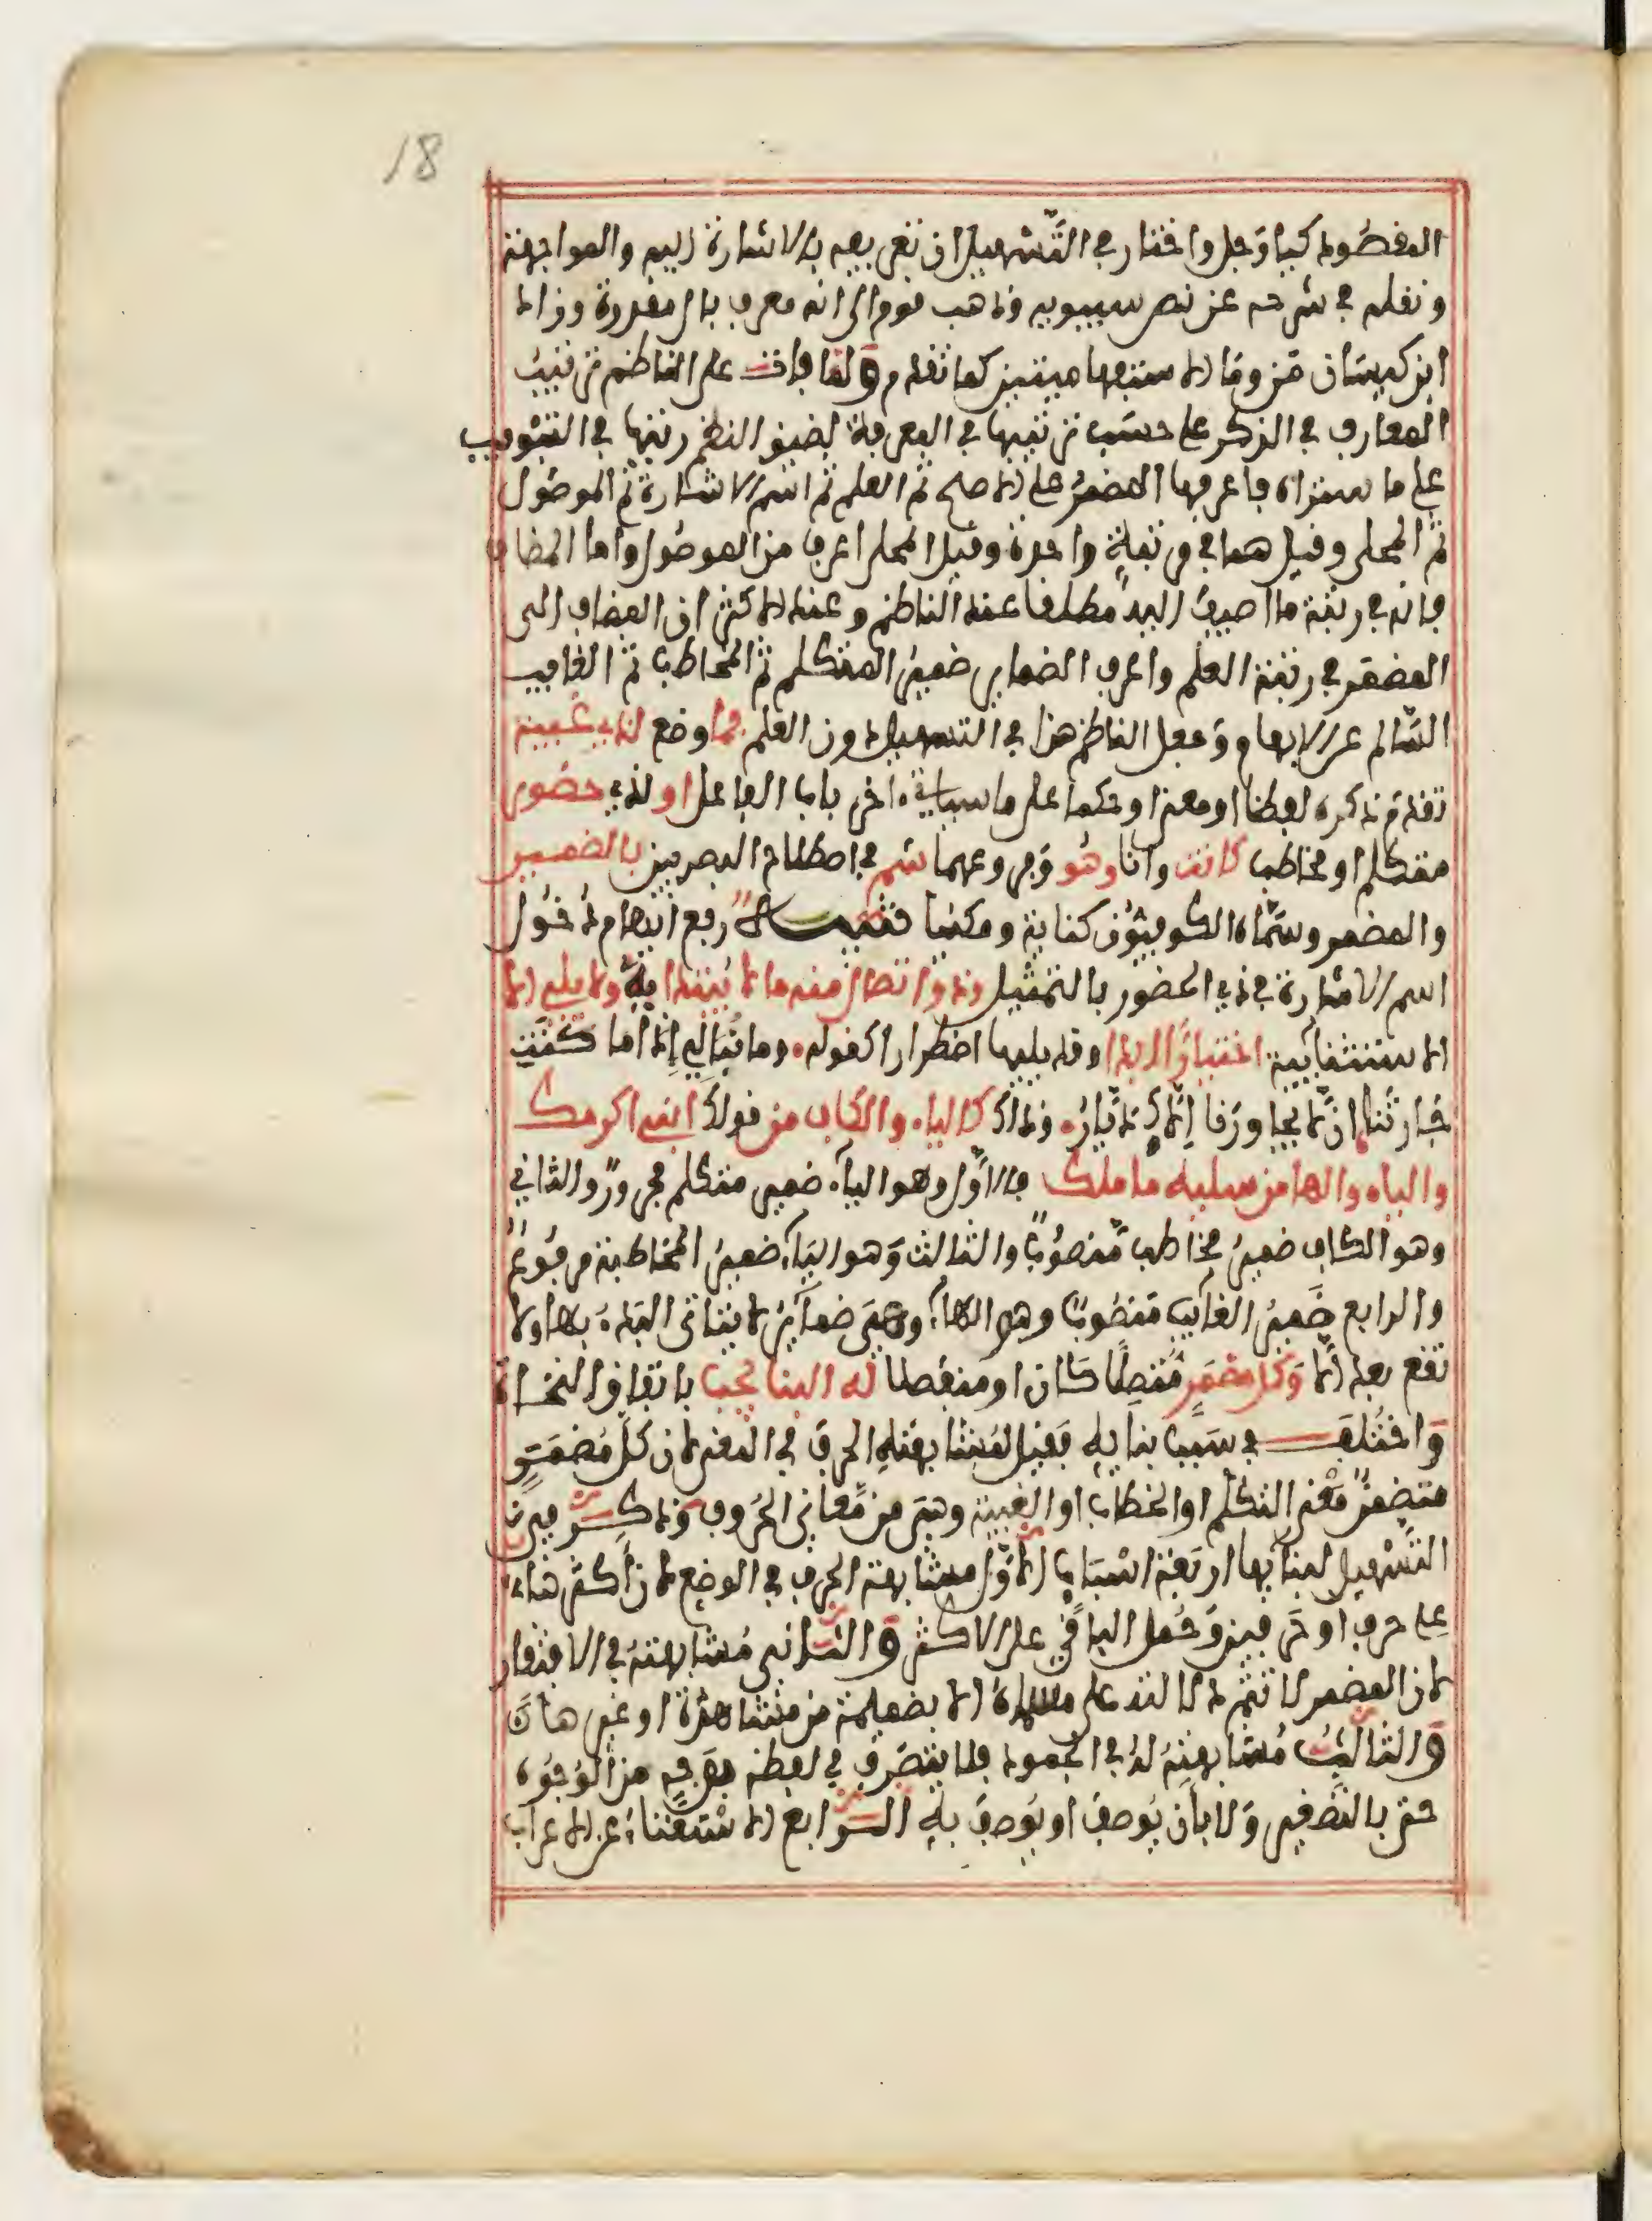 18
المقصود كيا رجل واختار في التسهيل ان تعريبه بالاشارة اليه والمواجهة
ونقله في شرحه عن نص سيبويه وذهب قوم الى انه معرف بال مقدرة وزاد
ابن كيسان من وما الاستفهاميتين كما تقدم ولما فات على الناظم ترتيب
المعارف في الذكر على حسب ترتيبها في المعرفة لضيق النظم رتبها في التبويب
على ما ستراه فاعرفها المضمر على الاصح ثم العلم ثم اسم الاشارة ثم الموصول
ثم المحلى وقيل هما في مرتبة واحدة وقيل المحلى اعرف من الموصول واما المضاف
فانه في رتبة ما اضيف اليه مطلقا عند الناظم وعند الاكثر ان المضاف الى
المضمر في رتبة العلم واعرف الضماير ضمير المتكلم ثم المخاطب ثم الغايب
السالم عن الابهام وجعل الناظم هذا في التسهيل دون العلم فما وضع لذي غيبة
تقدم ذكره لفظا او معنى او حكما على ما سياتي ءاخر باب الفاعل او لذي حضور
متكلم او مخاطب كانت وانا وهو وفروعهما سم في اصطلاح البصريين بالضمير
والمضمر وسماه الكوفيون كناية ومكنيا تنبيه رفع ايهام دخول
اسم الاشارة في ذي الحضور بالتمثيل وذو اتصال منه ما لا يبتدا به ولا يلي الا
الاستثنايية اختيارا ابدا وقد يليها اضطرارا كقوله وما نبالي اذا ما كنت
جارتنا ان لا يجاورنا الاك ديار وذاك كالياء والكاف من قولك ابني اكرمك
والياء والها من سليه ما ملك فالاول وهو الياء ضمير متكلم مجرور والثاني
وهو الكاف ضمير مخاطب منصوب والثالث وهو الياء ضمير المخاطبة مرفوع
والرابع ضمير الغايب منصوب وهو الهاء وهي ضماير لا يتاتى البدء بها ولا
تقع بعد الا وكل مضمر متصلا كان او منفصلا له البنا يجب باتفاق النحاة
واختلف في سبب بنايه فقيل لمشابهته الحرف في المعنى لان كل مضمر
متضمن معنى التكلم او الخطاب او الغيبة وهي من معاني الحروف وذكر في
التسهيل لبنايها اربعة اسباب الاول مشابهة الحرف في الوضع لان اكثرها
على حرف او حرفين وحمل الباقي على الاكثر والثاني مشابهته في الافتقار
لان المضمر لا تتم دلالته على مسماه الا بضميمة من مشاهدة او غيرها
والثالث مشابهته له في الجمود فلا يتصرف في لفظه بوجه من الوجوه
حتى بالتصغير ولا بان يوصف او يوصف به الرابع الاستغناء عن الاعراب